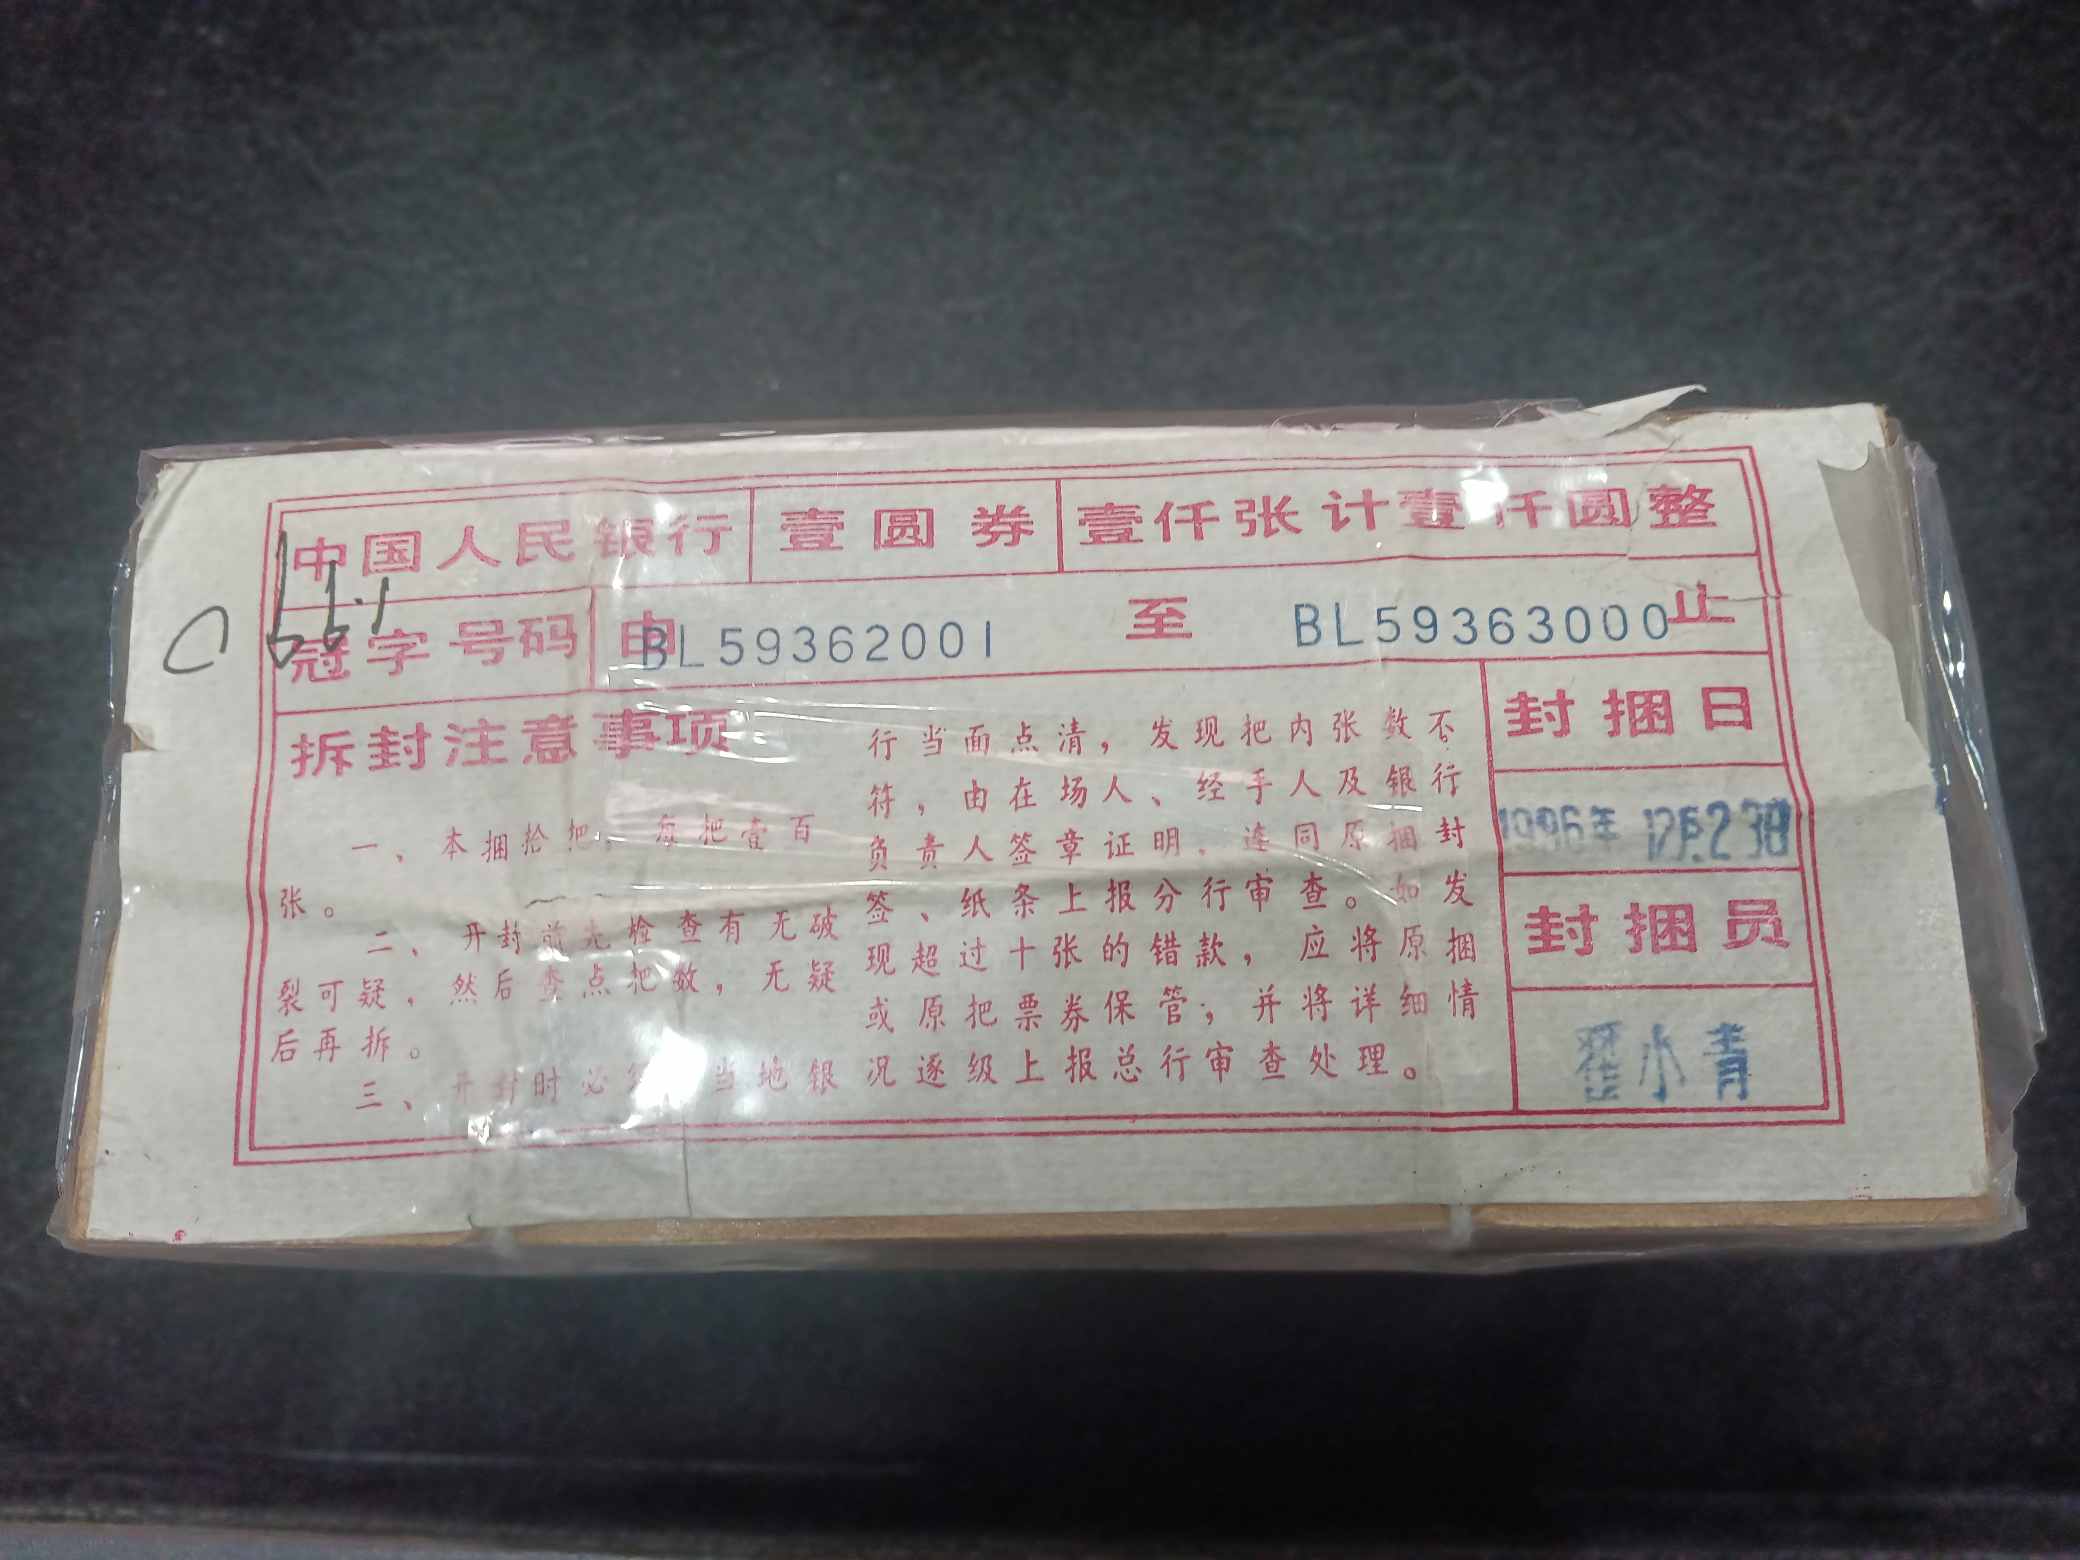 中国人民银行 壹圆券 壹仟张计壹仟圆整
冠字号码 由BL59362001 至 BL59363000止
拆封注意事项
一、本捆拾把,每把壹百
张。
二、开封前先检查有无破
裂可疑,然后查点把数,无疑
后再拆。
三、开封时必须 当地银
行当面点清,发现把内张数不
符,由在场人、经手人及银行
负责人签章证明、连同原捆封
签、纸条上报分行审查。如发
现超过十张的错款,应将原捆
或原把票券保管;并将详细情
况逐级上报总行审查处理。
封捆日
1996年 12月23日
封捆员
小青